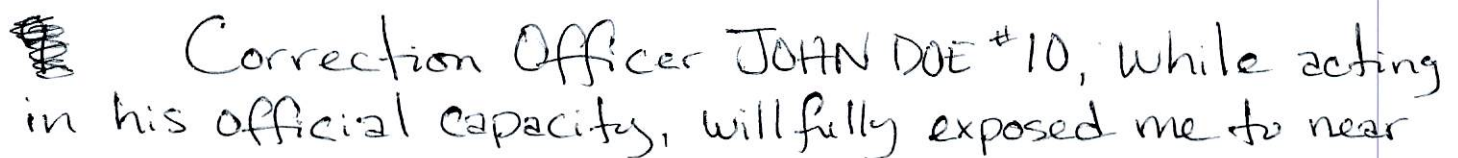 Correction Officer JOHN DOE #10, while acting
in his official capacity, willfully exposed me to near